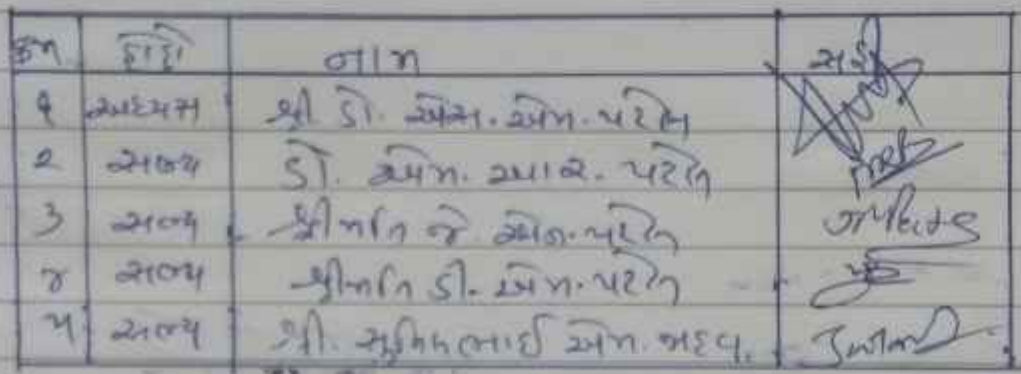 ક્રમ હોદ્દો નામ સહી
૧ અધ્યક્ષ શ્રી ડો. એસ. એમ. પટેલ
૨ સભ્ય ડો. એમ. આર. પટેલ
૩ સભ્ય શ્રીમતિ જે. એન. પટેલ
૪ સભ્ય શ્રીમતિ ડી. એમ. પટેલ
૫ સભ્ય શ્રી. એમ.